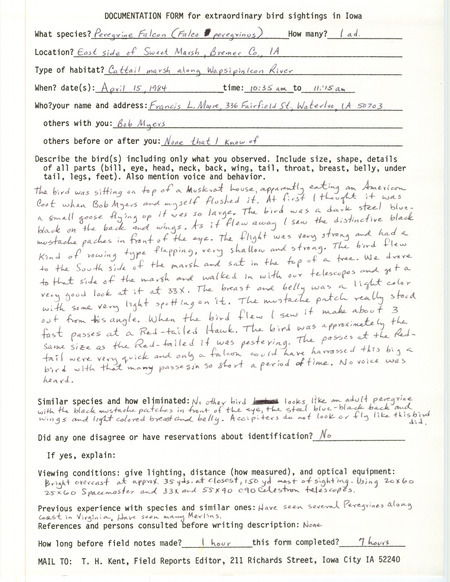 DOCUMENTATION FORM for extraordinary bird sightings in Iowa
What species? Peregrine Falcon (Falco peregrinus) How many? 1 ad.
Location? East side of Sweet Marsh, Bremer Co., IA
Type of habitat? Cattail marsh along Wapsipinicon River
When? date(s): April 15, 1984 time: 10:35 am to 11:15 am
Who? your name and address: Francis L. Moore, 336 Fairfield St, Waterloo, IA 50703
others with you: Bob Myers
others before or after you: None that I know of
Describe the bird(s) including only what you observed. Include size, shape, details
of all parts (bill, eye, head, neck, back, wing, tail, throat, breast, belly, under
tail, legs, feet). Also mention voice and behavior.
The bird was sitting on top of a Muskrat house, apparently eating an American
Coot when Bob Myers and myself flushed it. At first I thought it was
a small goose flying up it was so large. The bird was a dark steel blue-
black on the back and wings. As it flew away I saw the distinctive black
mustache patches in front of the eye. The flight was very strong and had a
kind of rowing type flapping, very shallow and strong. The bird flew
to the South side of the marsh and sat in the top of a tree. We drove
to that side of the marsh and walked in with our telescopes and got a
very good look at it at 33X. The breast and belly was a light color
with some very light spotting on it. The mustache patch really stood
out from this angle. When the bird flew I saw it make about 3
fast passes at a Red-tailed Hawk. The bird was approximately the
same size as the Red-tailed it was pestering. The passes at the Red-
tail were very quick and only a falcon could have harrassed this big a
bird with that many passes in so short a period of time. No voice was
heard.
Similar species and how eliminated: No other bird looks like an adult peregrine
with the black mustache patches in front of the eye, the steel blue-black back and
wings and light colored breast and belly. Accipiters do not look or fly like this bird
did.
Did any one disagree or have reservations about identification? No
If yes, explain:
Viewing conditions: give lighting, distance (how measured), and optical equipment:
Bright overcast at approx. 35 yds. at closest, 150 yd most of sighting. Using 20x60
25x60 Spacemaster and 33X and 55x90 C90 Celestron telescopes.
Previous experience with species and similar ones: Have seen several Peregrines along
coast in Virginia, Have seen many Merlins.
References and persons consulted before writing description: None
How long before field notes made? 1 hour this form completed? 7 hours
MAIL TO: T. H. Kent, Field Reports Editor, 211 Richards Street, Iowa City IA 52240